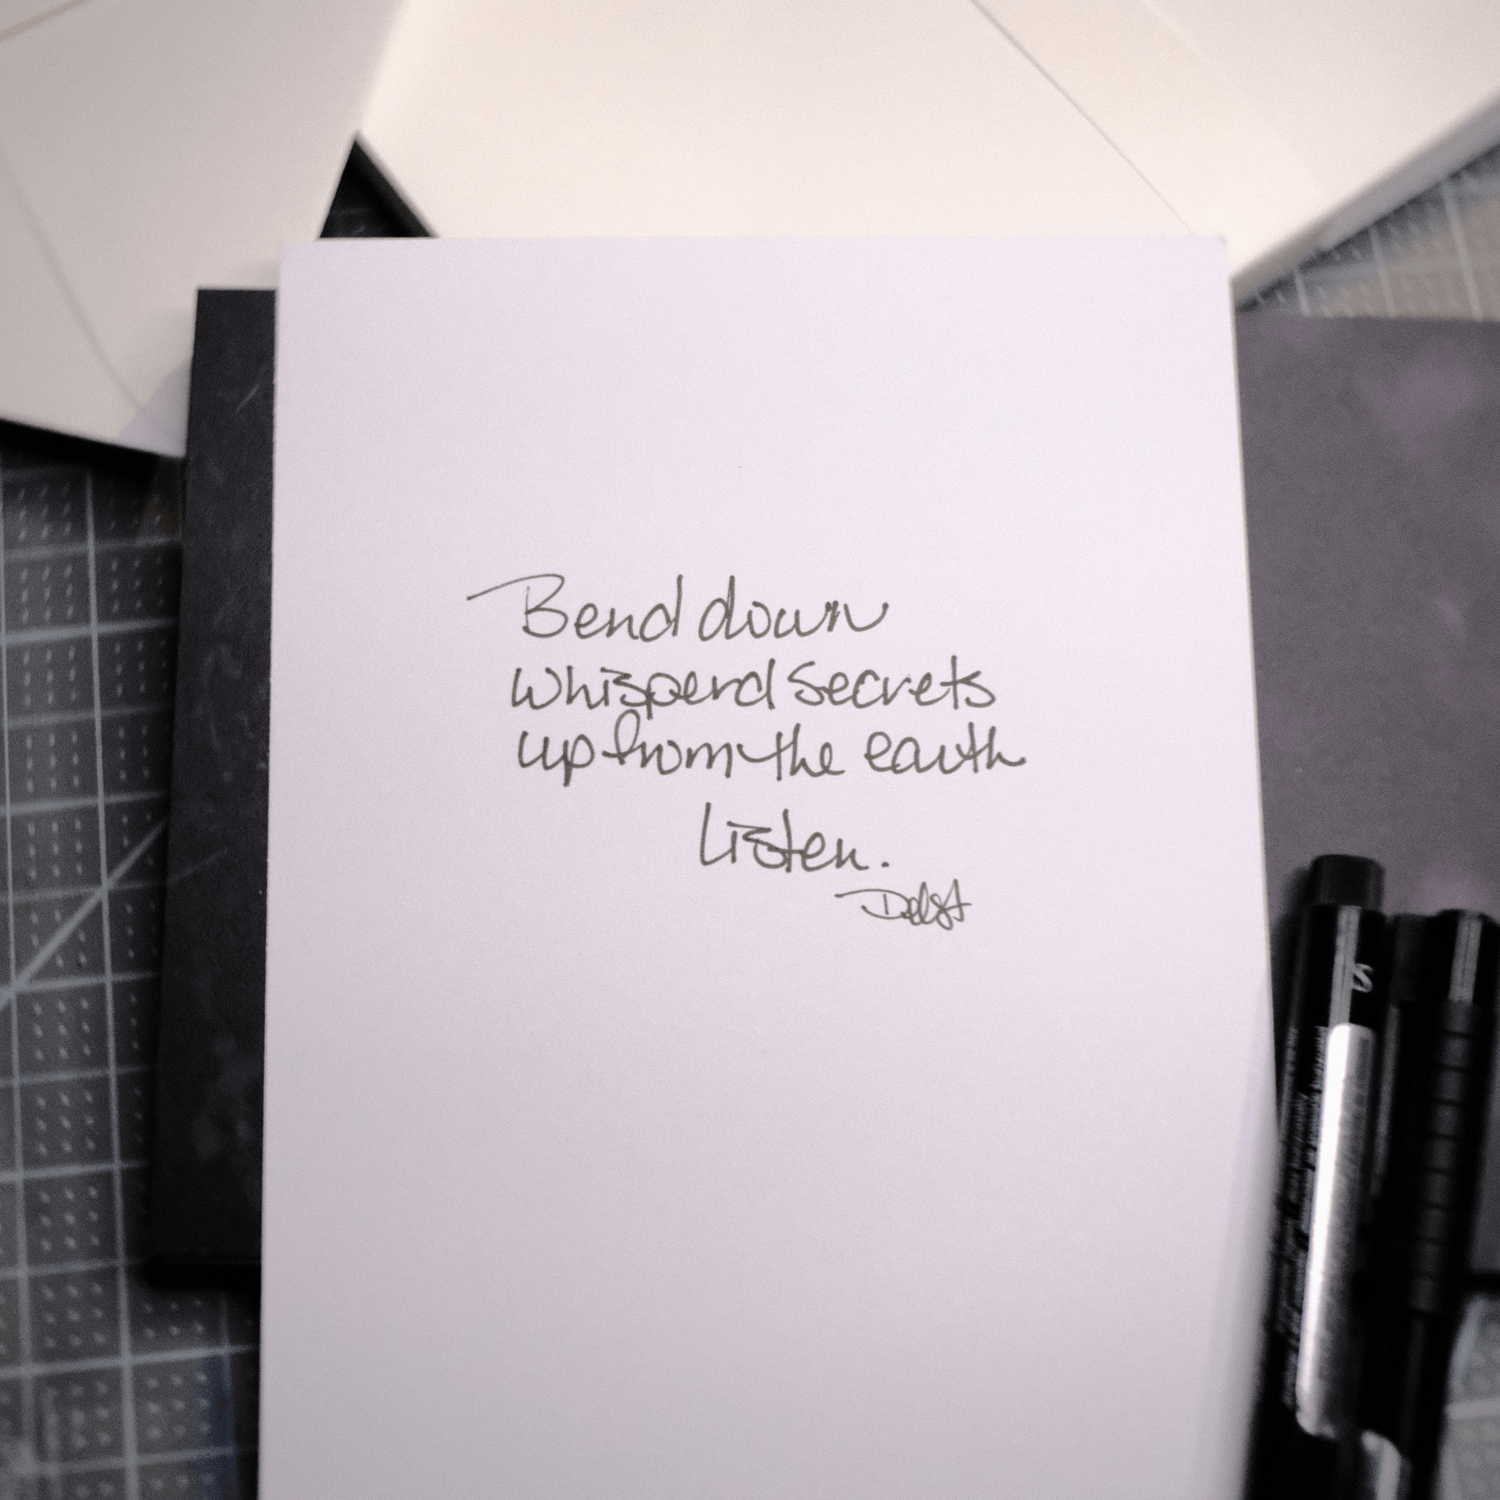 Bend down
whisperd secrets
up from the earth
Listen.
S